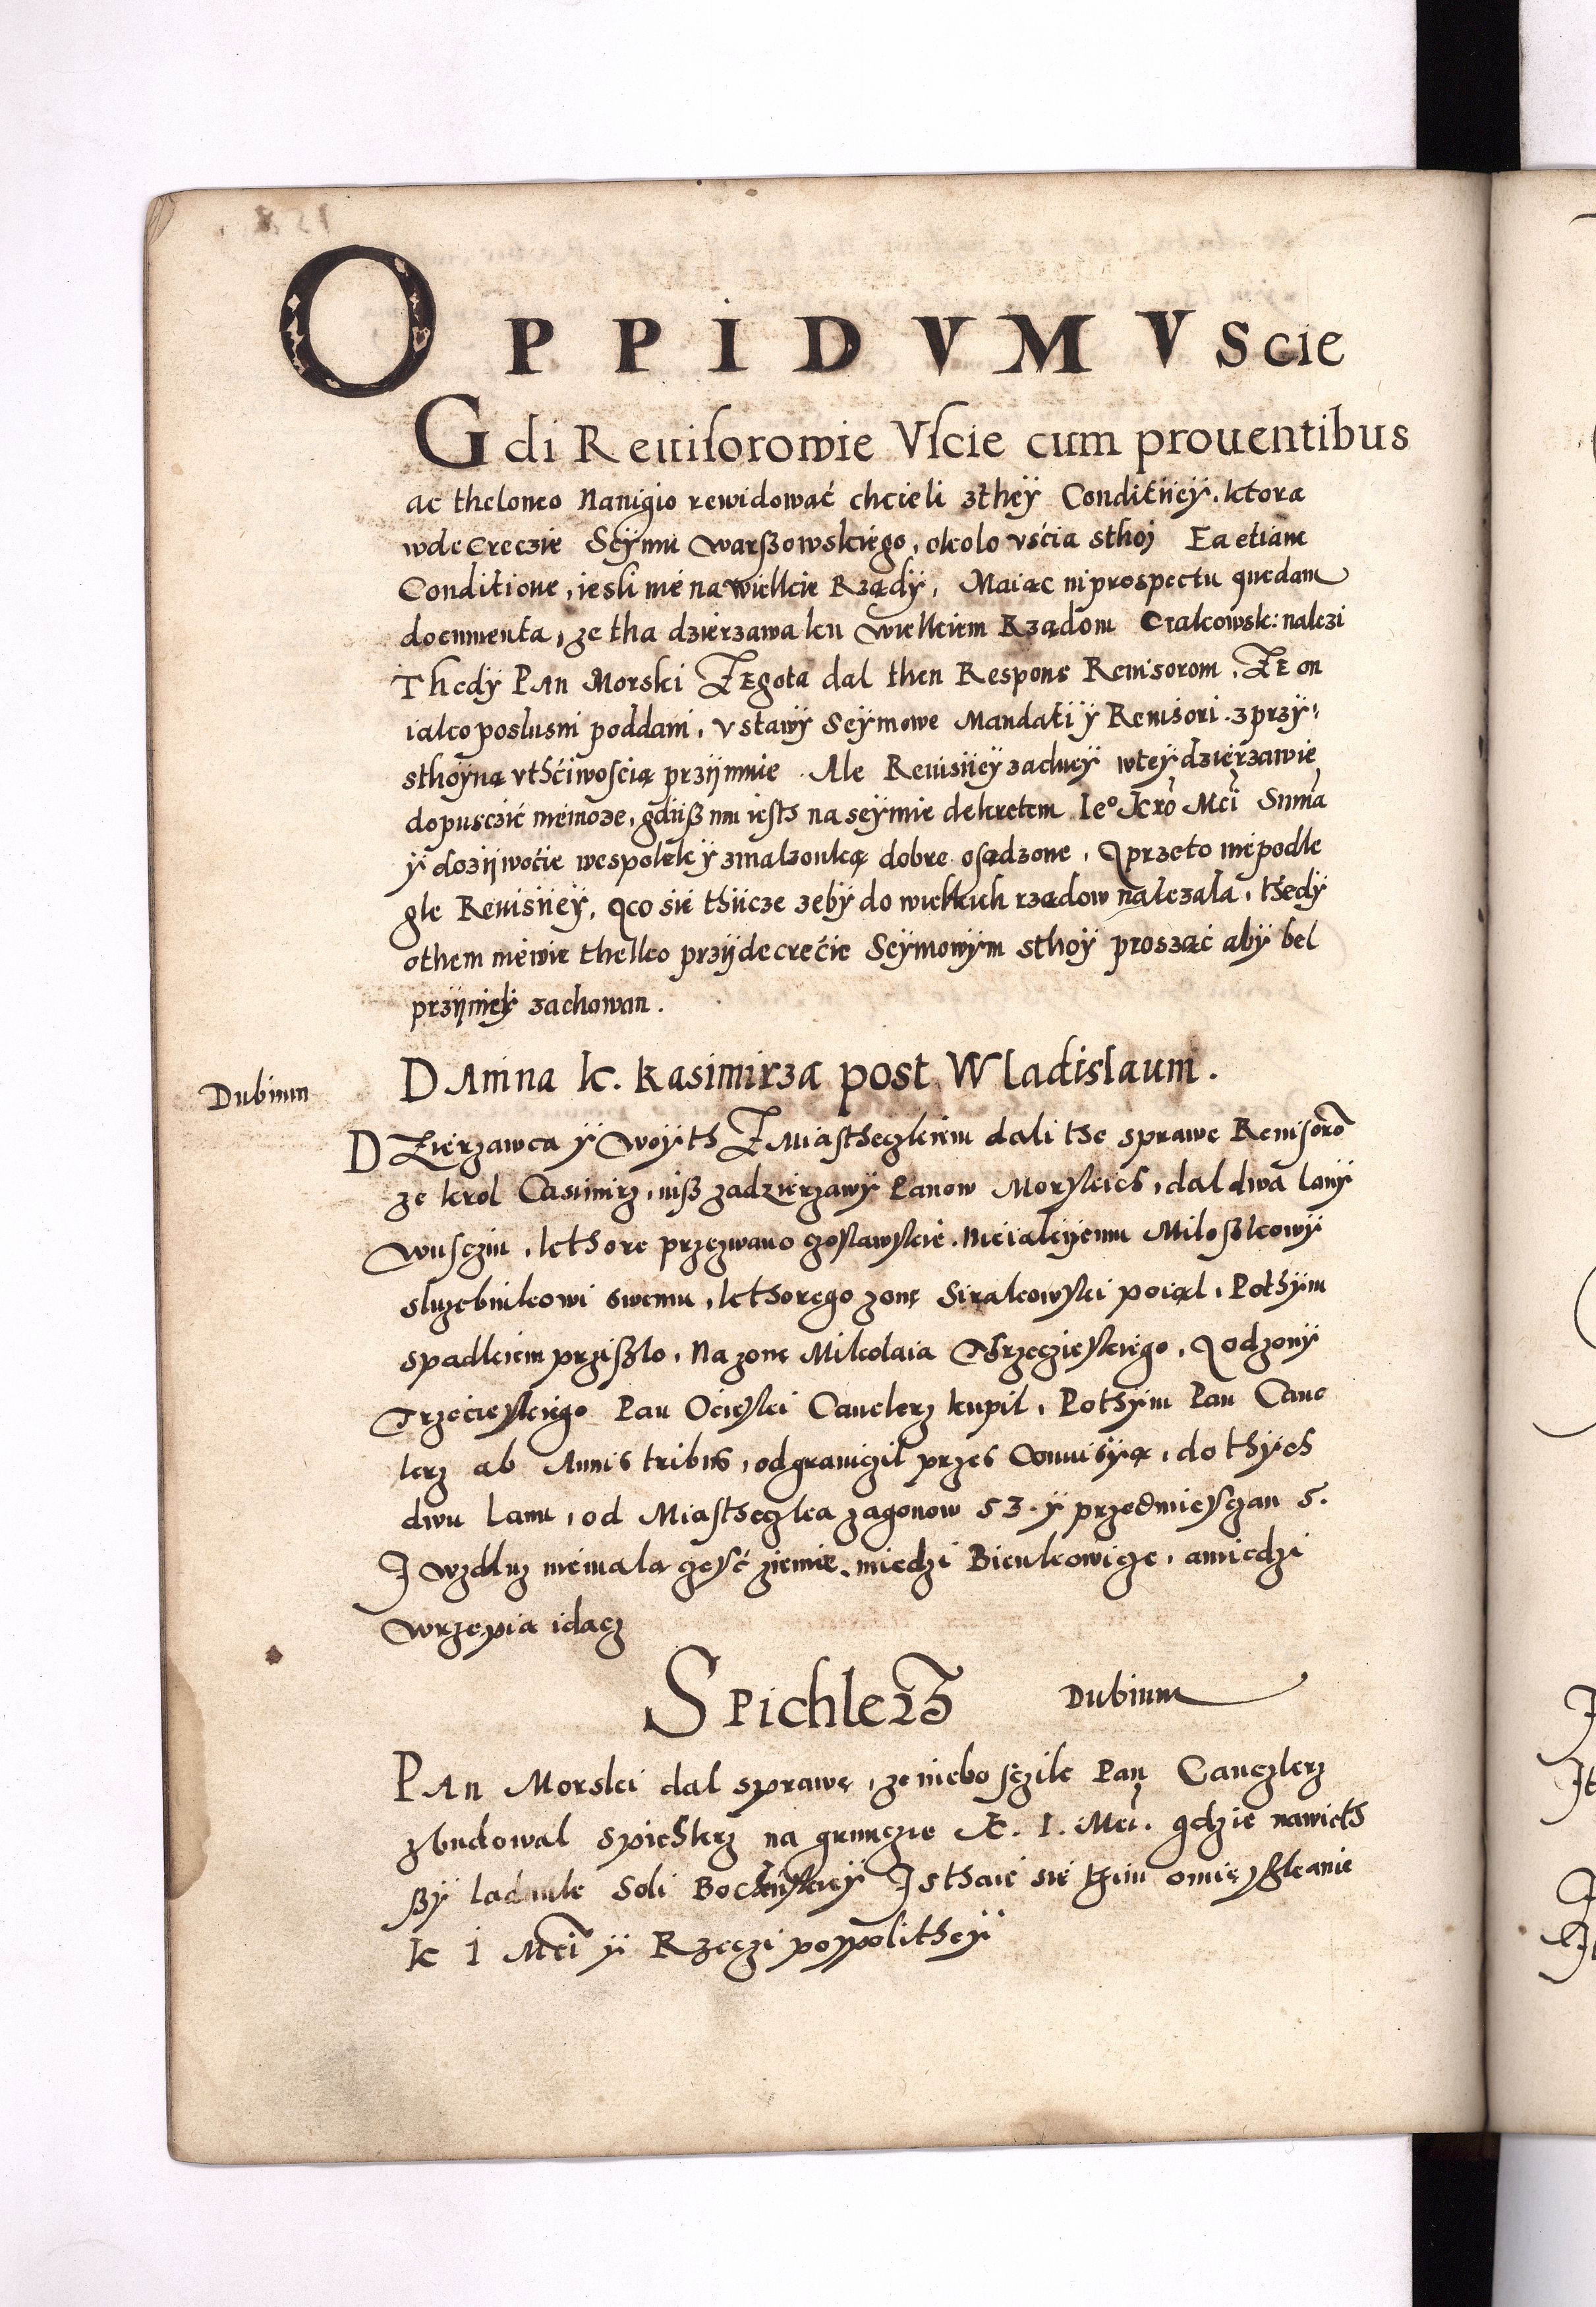 OPPIDVM VScie
Gdi Reuisorowie Vscie cum prouentibus
ac theloneo Nauigio rewidować chcieli zthey Conditiiey. ktora
wdecreczie Seymu warszowskiego, okolo vścia sthoi Ea etiam
Conditione, iesli nie na wielkie Rządÿ, Maiąc in prospectu quedam
documenta, ze tha dzierzawa ku wielkiem Rządom Crakowsk: nalezi
Thedÿ PAn Morski ZEgota dal then Respons Reuisorom, ZE on
iako poslusni poddani, vstawÿ Seÿmowe Mandati ÿ Reuisori. z przÿ:
sthoÿną vthćiwoscią przijmuie. Ale Reuisiieÿ zadneÿ wteÿ dzierzawie
dopusczić niemoze, gdiiß mu iesth na seÿmie dekretem Ie° Kro Mci Suma
ÿ dozÿwoćie wespolek ÿ zmalzonką dobre osądzone, Qprzeto niepodle
gle Reuisiieÿ, qco sie thiicze zebÿ do wielkich rządow nalezala, thedÿ
othem niewie thelko przÿ decrećie Seÿmowÿm sthoÿ proszać abÿ bel
przÿnieÿ zachowan.
Dubium
DAmna K. Kasimirza post Wladislaum.
DZierzawca ÿ Woyth Z Miastheczkiem dali the sprawe Reuisorō
ze krol Casimirz, niß zadzierzawÿ Panow Morskich, dal dwa lanÿ
wuscziu, kthore przezwano gostawskie. nieiakiiemu Miloszkowÿ
sluzebnikowi swemu, kthorego zonę Sirakowski poiąl, Pothÿm
spadkiem prziszlo, na zone Mikolaia Thrzecieskiego, Qodzonÿ
Trzecieskiego Pan Ocieski Canclerz kupil, Pothÿm Pan Canc
lerz ab Annis tribus, odgraniczil przes Comisÿą, do thÿch
dwu lanu, od Miastheczka zagonow 53. ÿ przedmiesczan 5.
I wzdluz niemala część ziemie, miedzi Bienkowicze, amiedzi
wrzepia idącz
SPichlerz Dubium
PAn Morski dal sprawę, ze niebosczik Pan Canczlerz
zbudowal spichlerz na grunczie K. I. Mci. gdzie nawieth
szÿ ladunk Soli Bochenskieÿ I sthaie sie thim omieszkanie
K I Mci ÿ Rzeczi pospolitheÿ